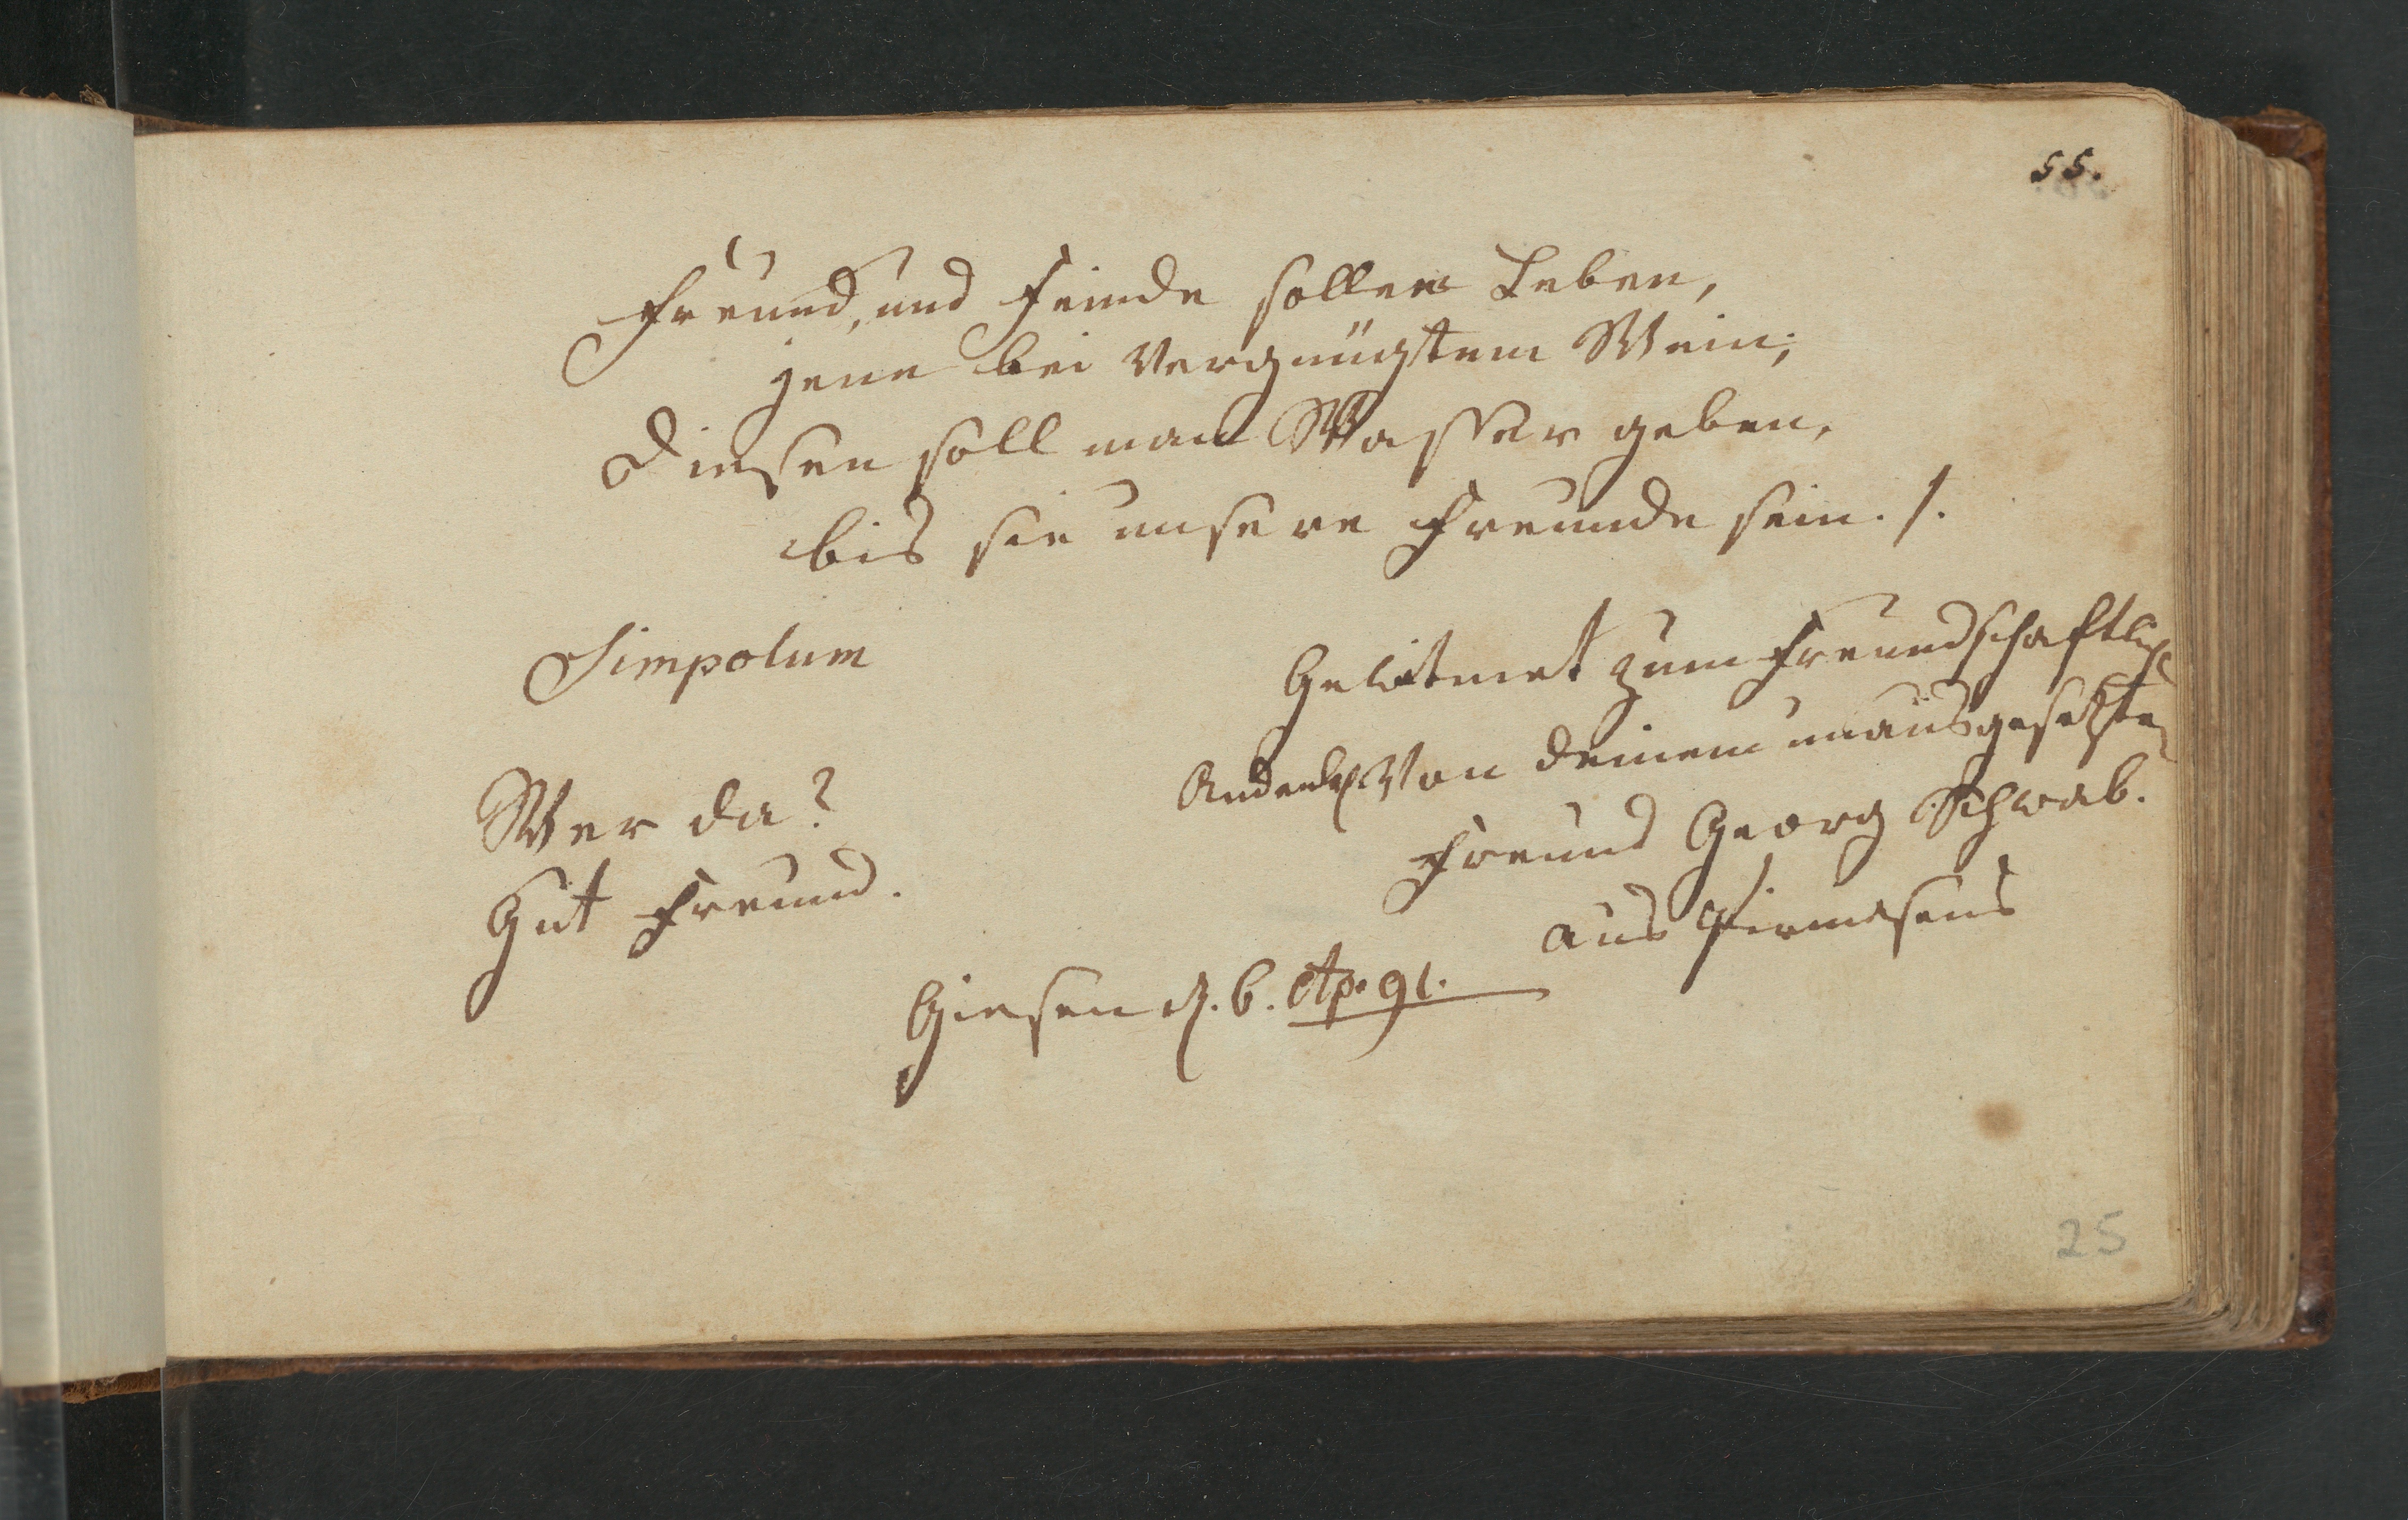 55.
Freund, und Feinde sollen Leben,
jene bei Vergnügtem Wein;
Diesen soll man Wasser geben,
bis sie unsere Freunde sein. /.
Simpolum
Gewitmet zum Freundschaftlich
Andenk. Von deinem unausgesetzten
Wer da?
Freund Georg Schwab.
Gut Freund.
aus Pirmesens
Giesen d. 6. Ap. 91.
25